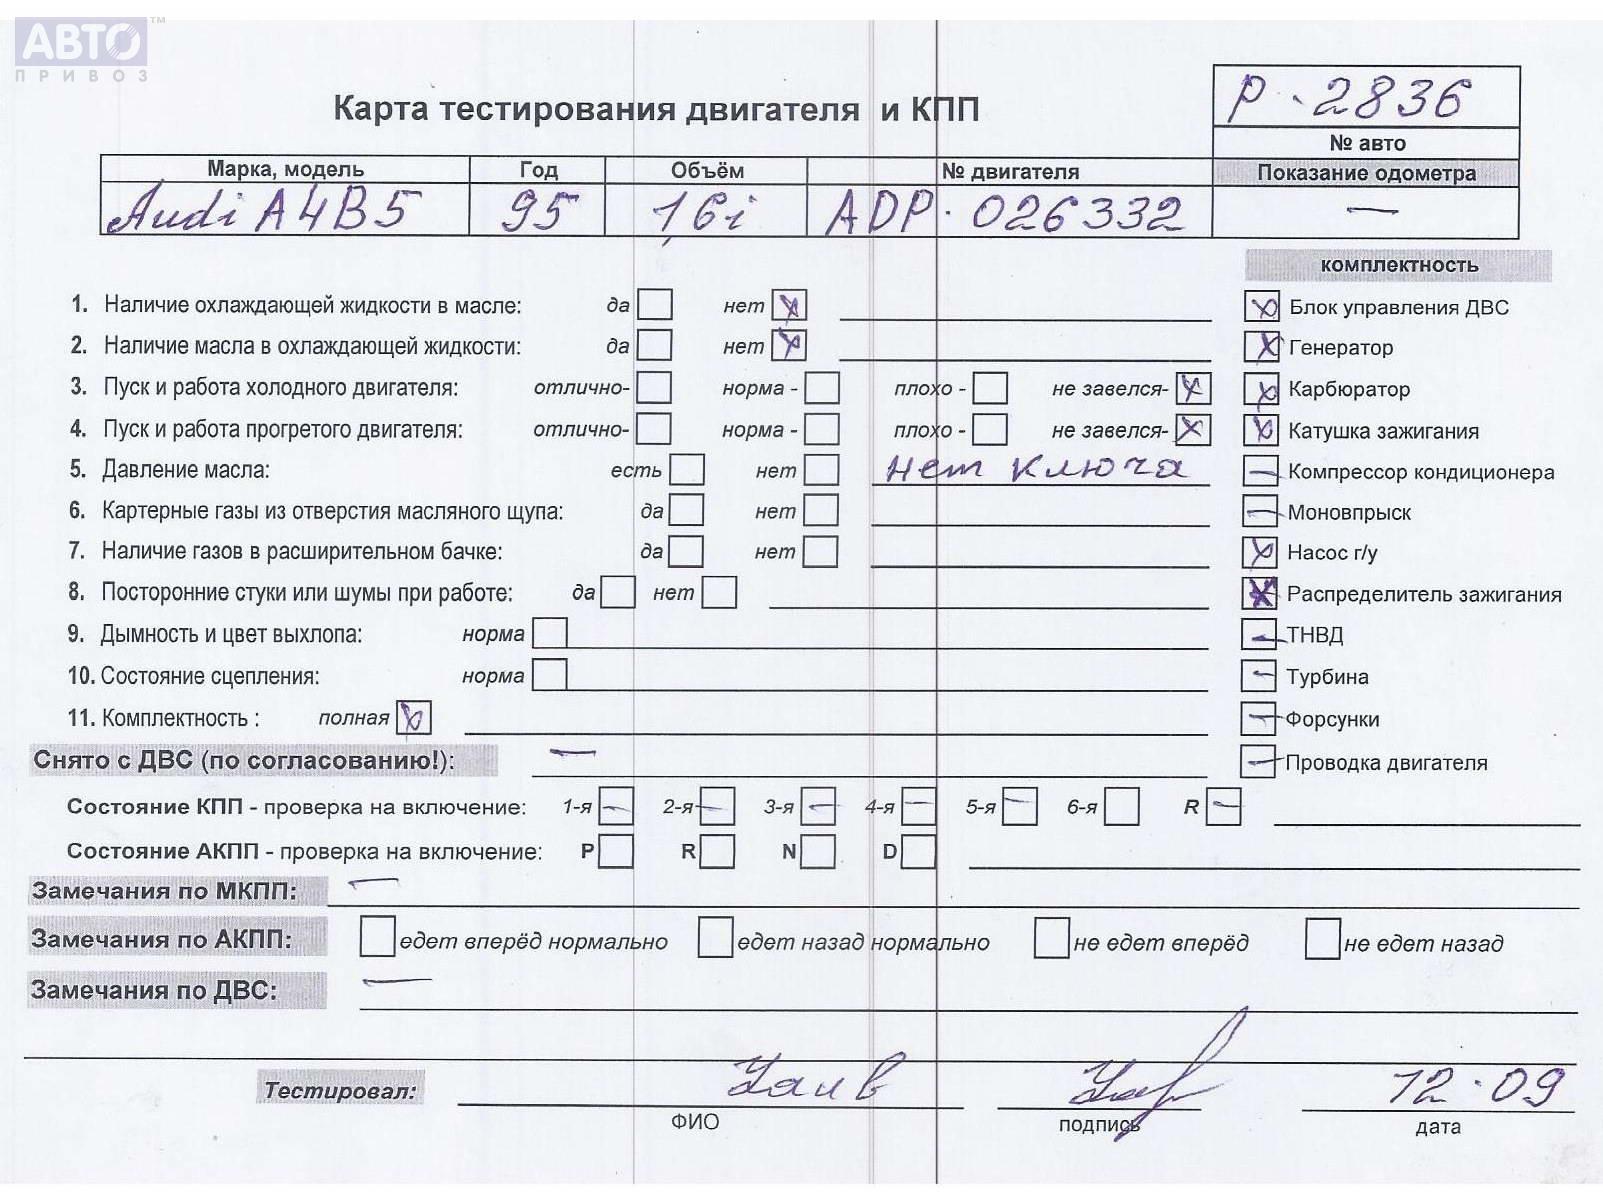 АВТО™
ПРИВОЗ
Р-2836
Карта тестирования двигателя и КПП
№ авто
Марка, модель Год Объём № двигателя Показание одометра
Audi A4B5 95 1,6i ADP. 026332 —
комплектность
1. Наличие охлаждающей жидкости в масле: да нет Блок управления ДВС
2. Наличие масла в охлаждающей жидкости: да нет Генератор
3. Пуск и работа холодного двигателя: отлично- норма - плохо - не завелся- Карбюратор
4. Пуск и работа прогретого двигателя: отлично- норма - плохо - не завелся- Катушка зажигания
5. Давление масла: есть нет нет ключа Компрессор кондиционера
6. Картерные газы из отверстия масляного щупа: да нет Моновпрыск
7. Наличие газов в расширительном бачке: да нет Насос г/у
8. Посторонние стуки или шумы при работе: да нет Распределитель зажигания
9. Дымность и цвет выхлопа: норма ТНВД
10. Состояние сцепления: норма Турбина
11. Комплектность : полная Форсунки
Снято с ДВС (по согласованию!): — Проводка двигателя
Состояние КПП - проверка на включение: 1-я 2-я 3-я 4-я 5-я 6-я R
Состояние АКПП - проверка на включение: P R N D
Замечания по МКПП: —
Замечания по АКПП: едет вперёд нормально едет назад нормально не едет вперёд не едет назад
Замечания по ДВС: —
Тестировал: 12.09
ФИО подпись дата